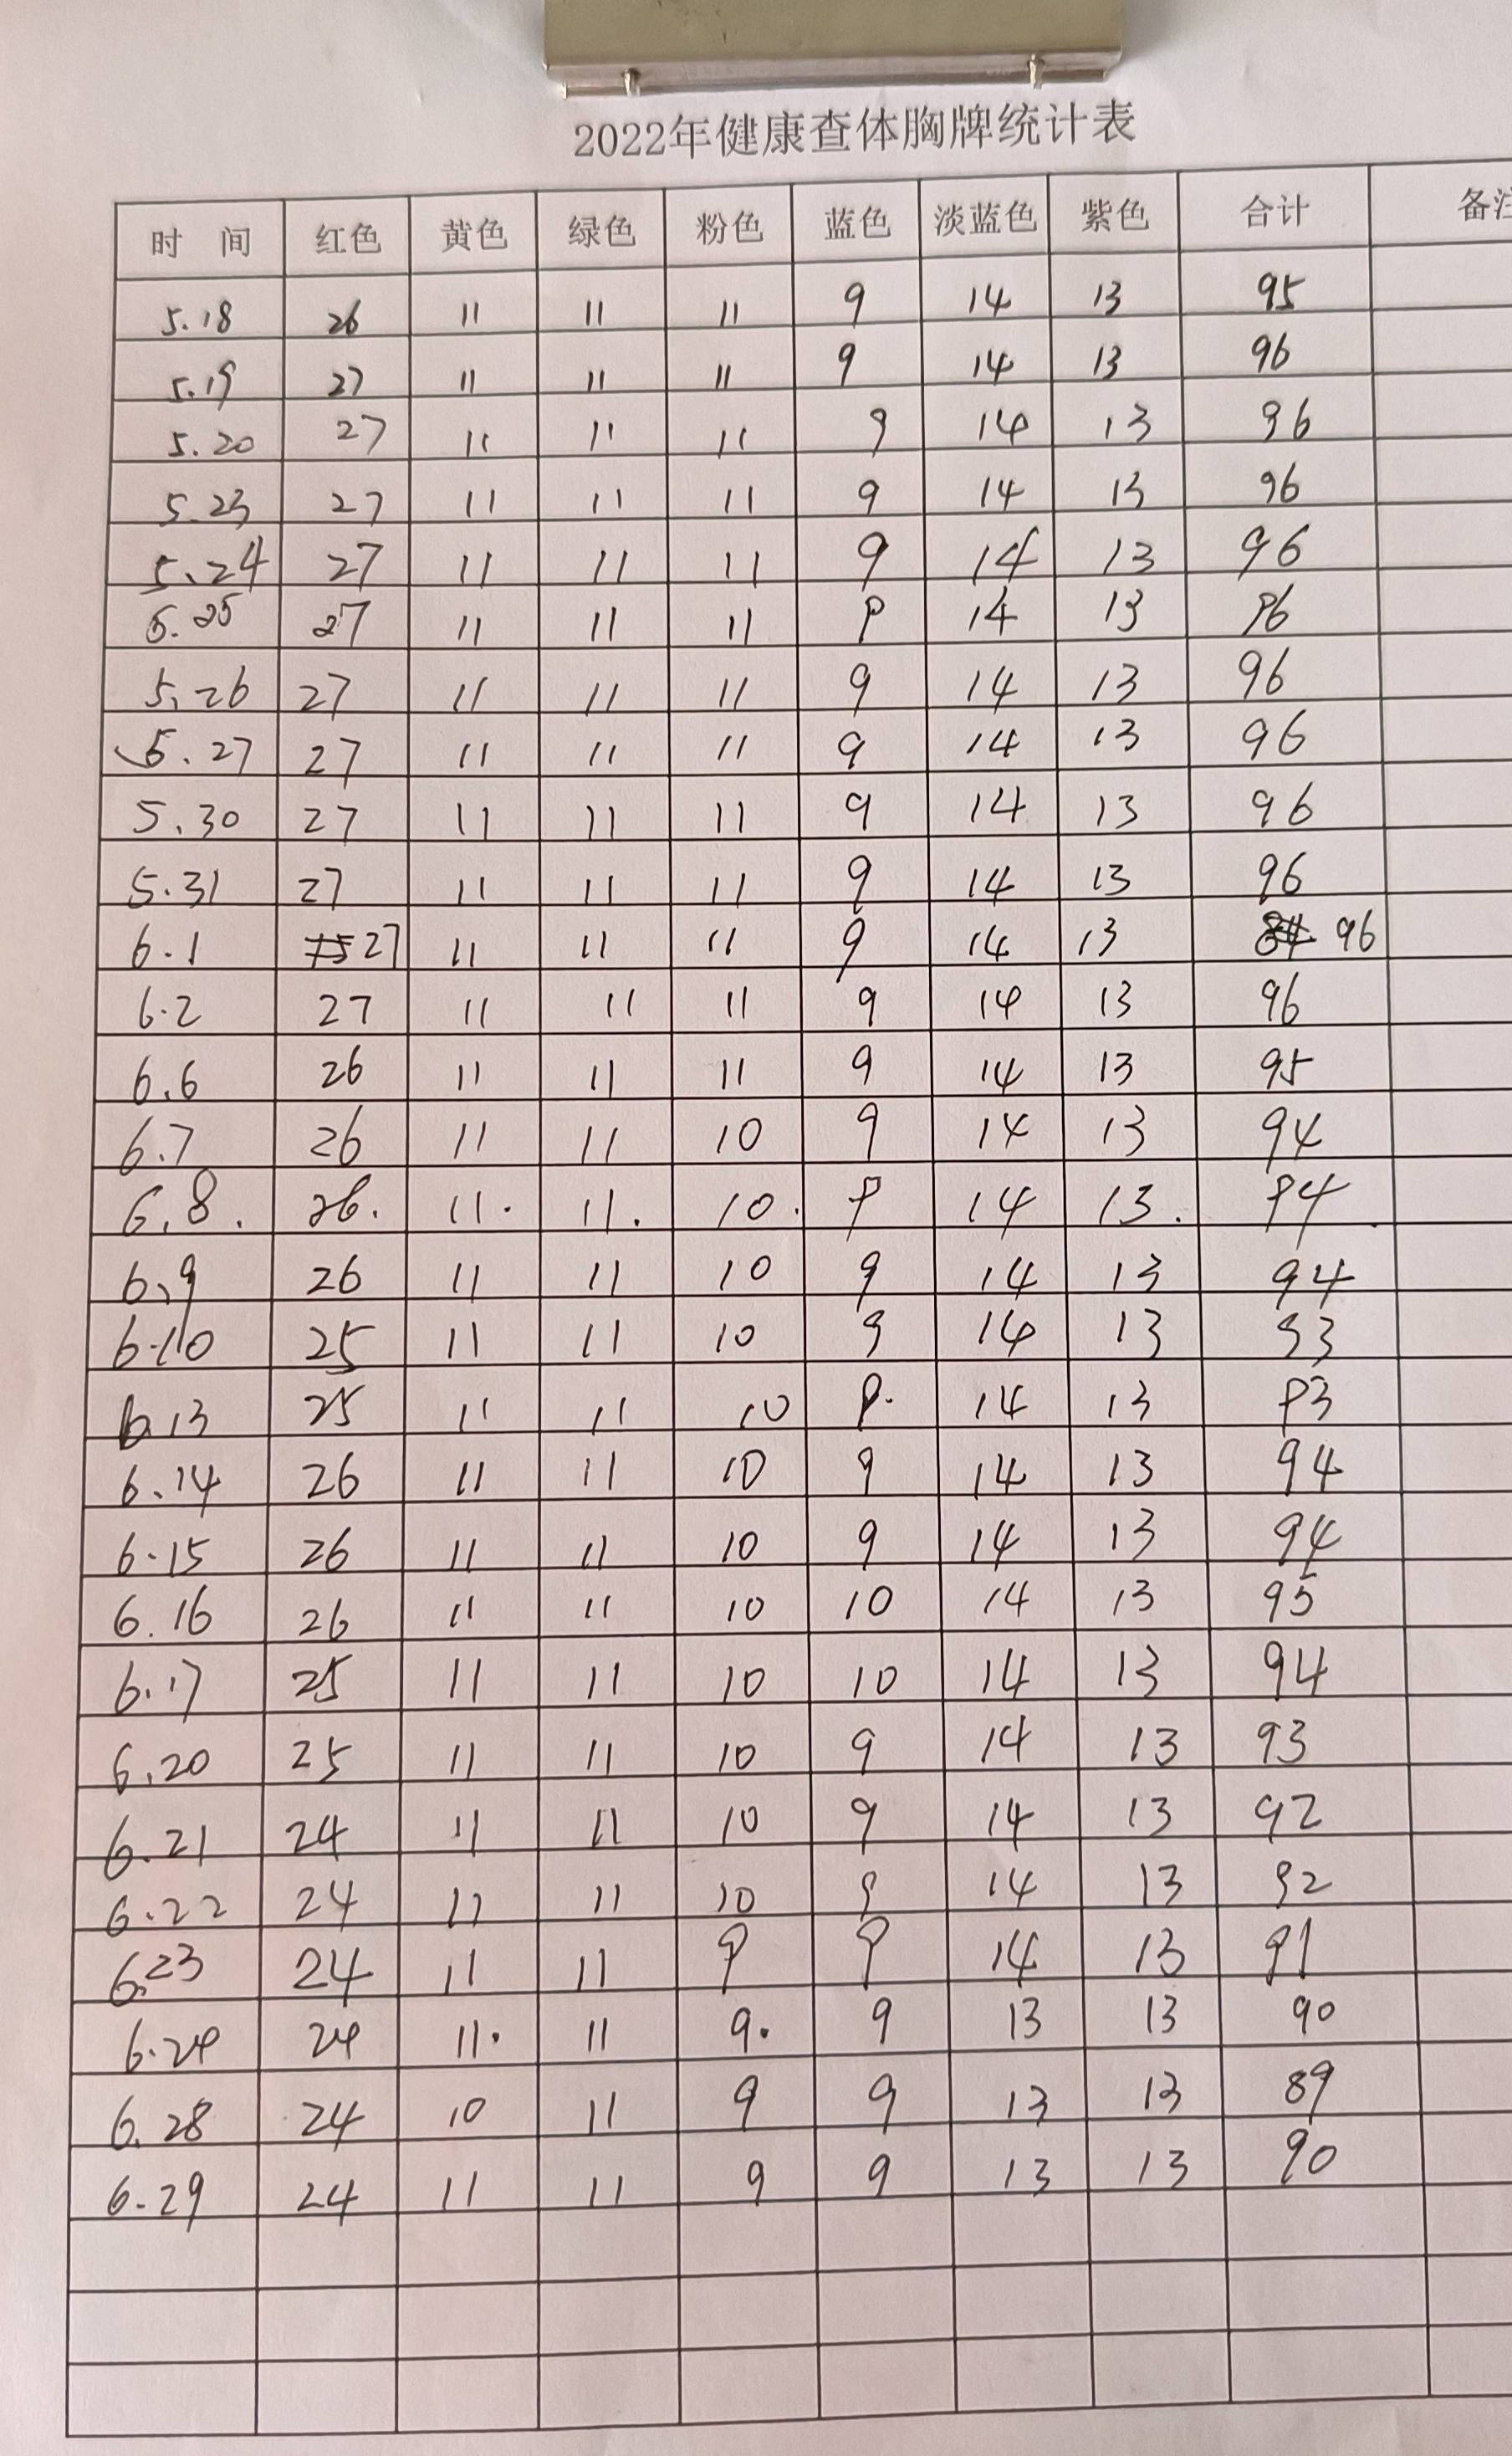 2022年健康查体胸牌统计表
时 间 红色 黄色 绿色 粉色 蓝色 淡蓝色 紫色 合计 备注
5.18 26 11 11 11 9 14 13 95
5.19 27 11 11 11 9 14 13 96
5.20 27 11 11 11 9 14 13 96
5.23 27 11 11 11 9 14 13 96
5.24 27 11 11 11 9 14 13 96
5.25 27 11 11 11 9 14 13 96
5.26 27 11 11 11 9 14 13 96
5.27 27 11 11 11 9 14 13 96
5.30 27 11 11 11 9 14 13 96
5.31 27 11 11 11 9 14 13 96
6.1 27 11 11 11 9 14 13 96
6.2 27 11 11 11 9 14 13 96
6.6 26 11 11 11 9 14 13 95
6.7 26 11 11 10 9 14 13 94
6.8. 26. 11. 11. 10. 9 14 13. 94.
6.9 26 11 11 10 9 14 13 94
6.10 25 11 11 10 9 14 13 93
6.13 25 11 11 10 9. 14 13 93
6.14 26 11 11 10 9 14 13 94
6.15 26 11 11 10 9 14 13 94
6.16 26 11 11 10 10 14 13 95
6.17 25 11 11 10 10 14 13 94
6.20 25 11 11 10 9 14 13 93
6.21 24 11 11 10 9 14 13 92
6.22 24 11 11 10 9 14 13 92
6.23 24 11 11 9 9 14 13 91
6.24 24 11. 11 9. 9 13 13 90
6.28 24 10 11 9 9 13 13 89
6.29 24 11 11 9 9 13 13 90